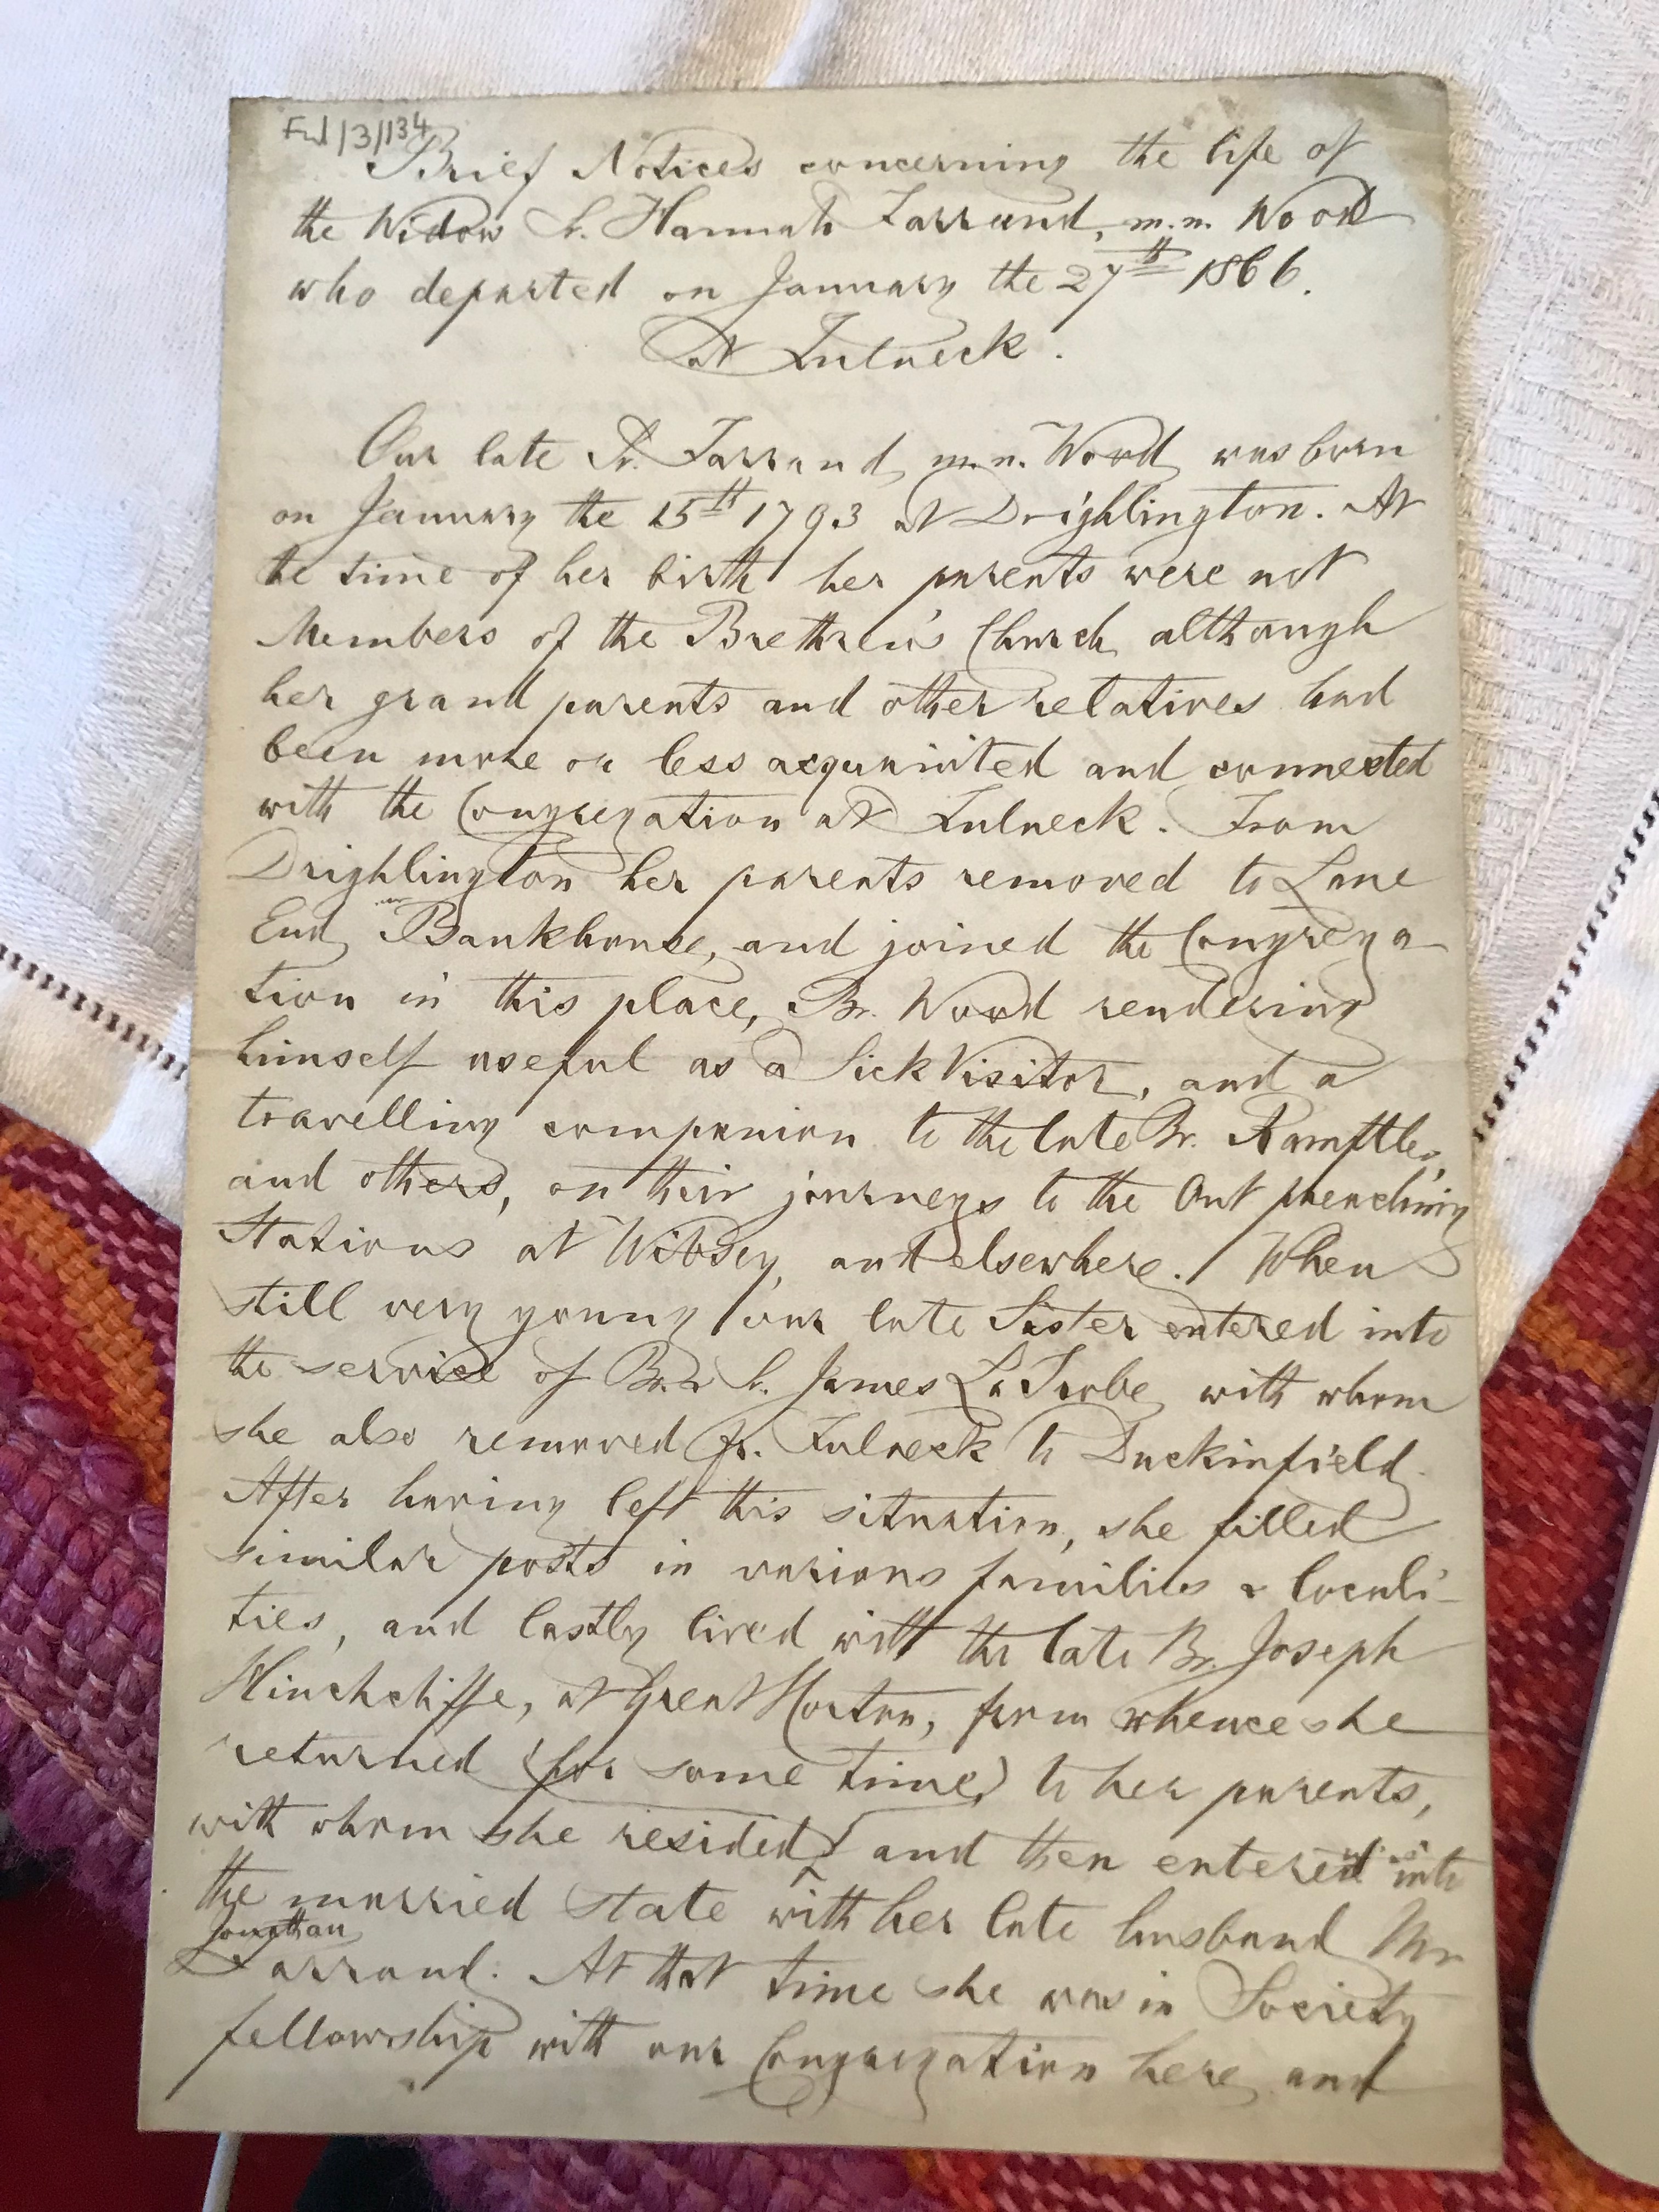 Ful/3/134
Brief Notices concerning the life of
the Widow Sr. Hannah Farrand, m.n. Wood
who departed on January the 27th 1866.
At Fulneck.
Our late Sr. Farrand m.n. Wood, was born
on January the 15th 1793 at Drighlington. At
the time of her birth her parents were not
Members of the Brethren's Church although
her grand parents and other relatives had
been more or less acquainted and connected
with the Congregation at Fulneck. From
Drighlington her parents removed to Lane
End, Bankhouse, and joined the Congrega-
tion in this place, Br. Wood rendering
himself useful as a Sick Visitor, and a
travelling companion to the late Br. Ramftler,
and others, on their journeys to the Out preaching
Stations at Wibsey, and elsewhere. When
still very young our late Sister entered into
the service of Br. & Sr. James La Trobe, with whom
she also removed fr. Fulneck to Duckinfield.
After having left this situation, she filled
similar posts in various families & locali-
ties, and lastly lived with the late Br. Joseph
Hinchcliffe, at Great Horton, from whence she
returned (for some time) to her parents,
with whom she resided, and then entered into
the married state with her late husband Mr
Jonathan
Farrand. At that time she was in Society
fellowship with our Congregation here, and